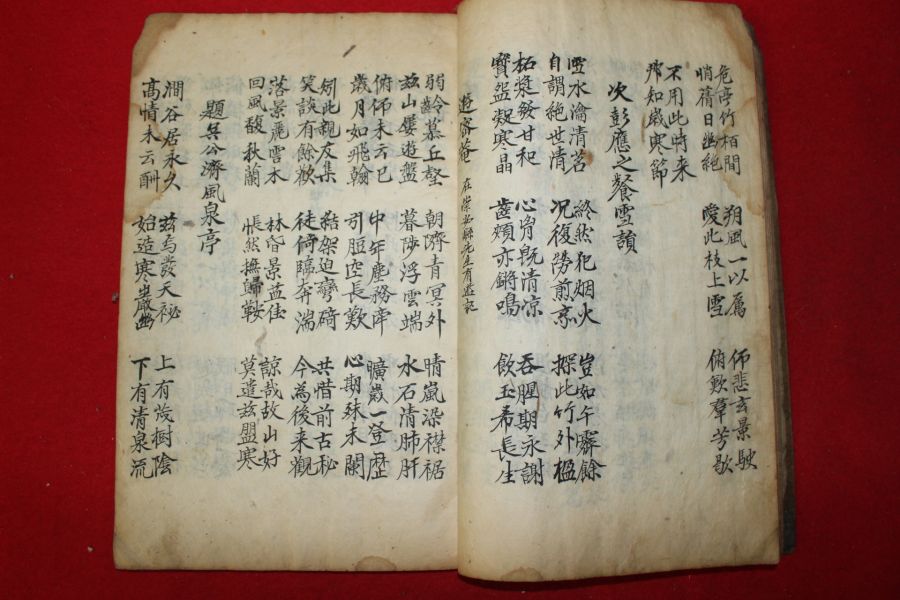 危亭竹栢間 朔風一以厲 仰悲玄景駛
悄蒨日幽絶 愛此枝上雪 俯歎羣芳歇
不用此時来
那知歲寒節
次彭應之餐雪韻
雪水瀹清茗 終然犯烟火 豈如午爨餘
自謂絶世清 况復勞前烹 探此竹外楹
柘漿發甘和 心胷旣清凉 吞腥期永謝
寶盌凝寒晶 齒頰亦鏘鳴 飮玉希長生
遊密菴 在崇安縣先生有遊記
弱齡慕丘壑 朝隮青冥外 晴嵐染襟裾
玆山屢遊盤 暮陟浮雲端 水石清肺肝
俯仰未云已 中年塵務牽 曠歲一登歷
歲月如飛翰 引脰空長歎 心期殊未闌
矧此親友集 結架迫彎碕 共惜前古秘
笑談有餘歡 徒倚臨奔湍 今為後来觀
落景麗雲木 林昏景益佳 諒哉故山好
回風馥秋蘭 悵然撫歸鞍 莫遣玆盟寒
題吳公濟風泉亭
澗谷居永久 玆焉發天秘 上有茂樹陰
高情未云酬 始造寒巖幽 下有清泉流